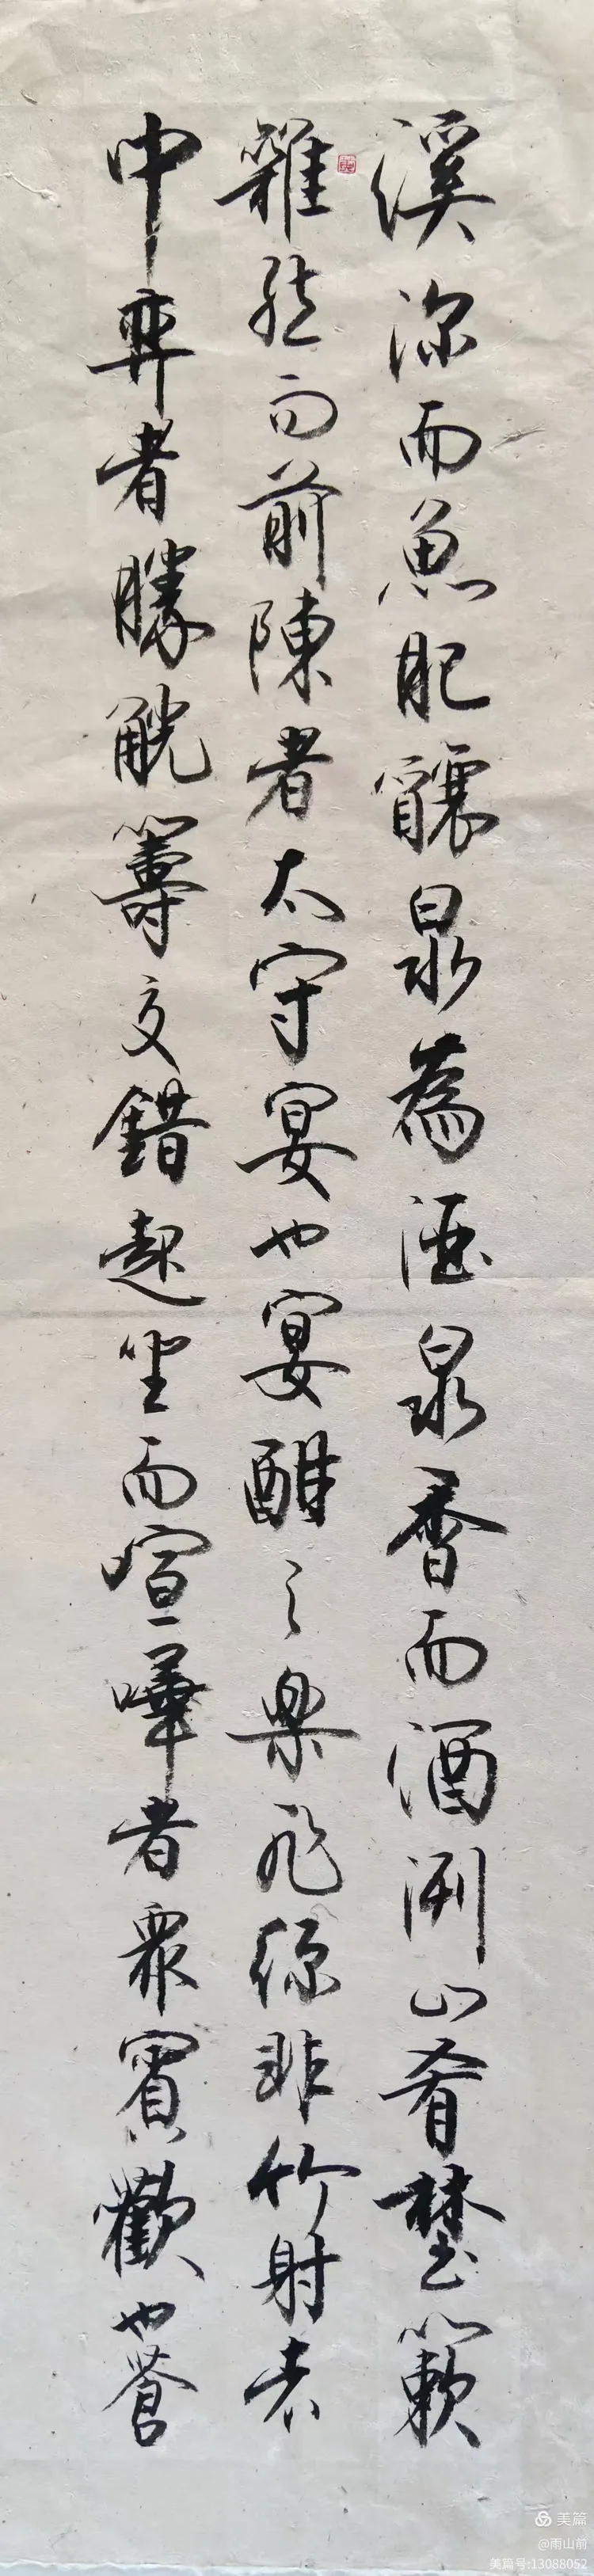 溪深而魚肥釀泉為酒泉香而酒洌山肴埜簌
雜然而前陳者太守宴也宴酣之樂非絲非竹射者
中弈者勝觥籌交錯起坐而喧嘩者眾賓歡也蒼
美篇
@雨山前
美篇号:13088052